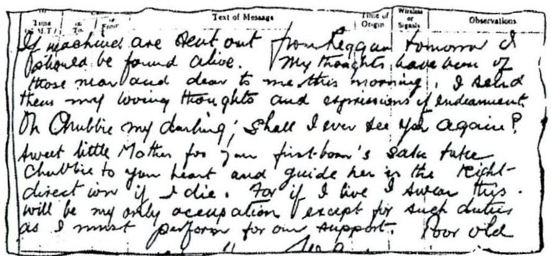 Time Text of Message Time of Origin Wireless or Signals Observations
If machines are sent out from Reggan tomorrow I
should be found alive. My thoughts have been of
those near and dear to me this morning. I send
them my loving thoughts and expressions of endearment.
Oh Chubbie my darling; shall I ever see you again?
Sweet little Mother for your first-born's sake take
Chubbie to your heart and guide her in the right-
direction if I die. For if I live I swear this.
will be my only occupation except for such duties
as I must perform for our support. Poor old